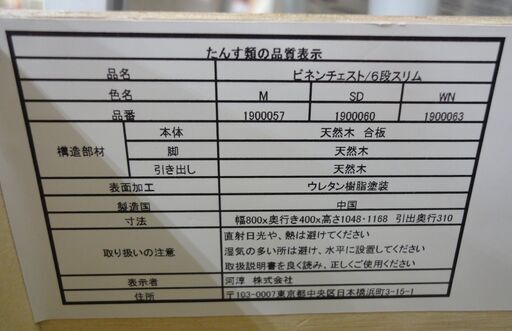 たんす類の品質表示
品名 ビネンチェスト/6段スリム
色名 M SD WN
品番 1900057 1900060 1900063
構造部材 本体 天然木 合板
脚 天然木
引き出し 天然木
表面加工 ウレタン樹脂塗装
製造国 中国
寸法 幅800x奥行き400x高さ1048・1168 引出奥行310
取り扱いの注意 直射日光や、熱は避けてください
湿気の多い所は避け、水平に設置してください
取扱説明書を良く読み、正しくご使用ください
表示者 河淳 株式会社
住所 〒103-0007東京都中央区日本橋浜町3-15-1